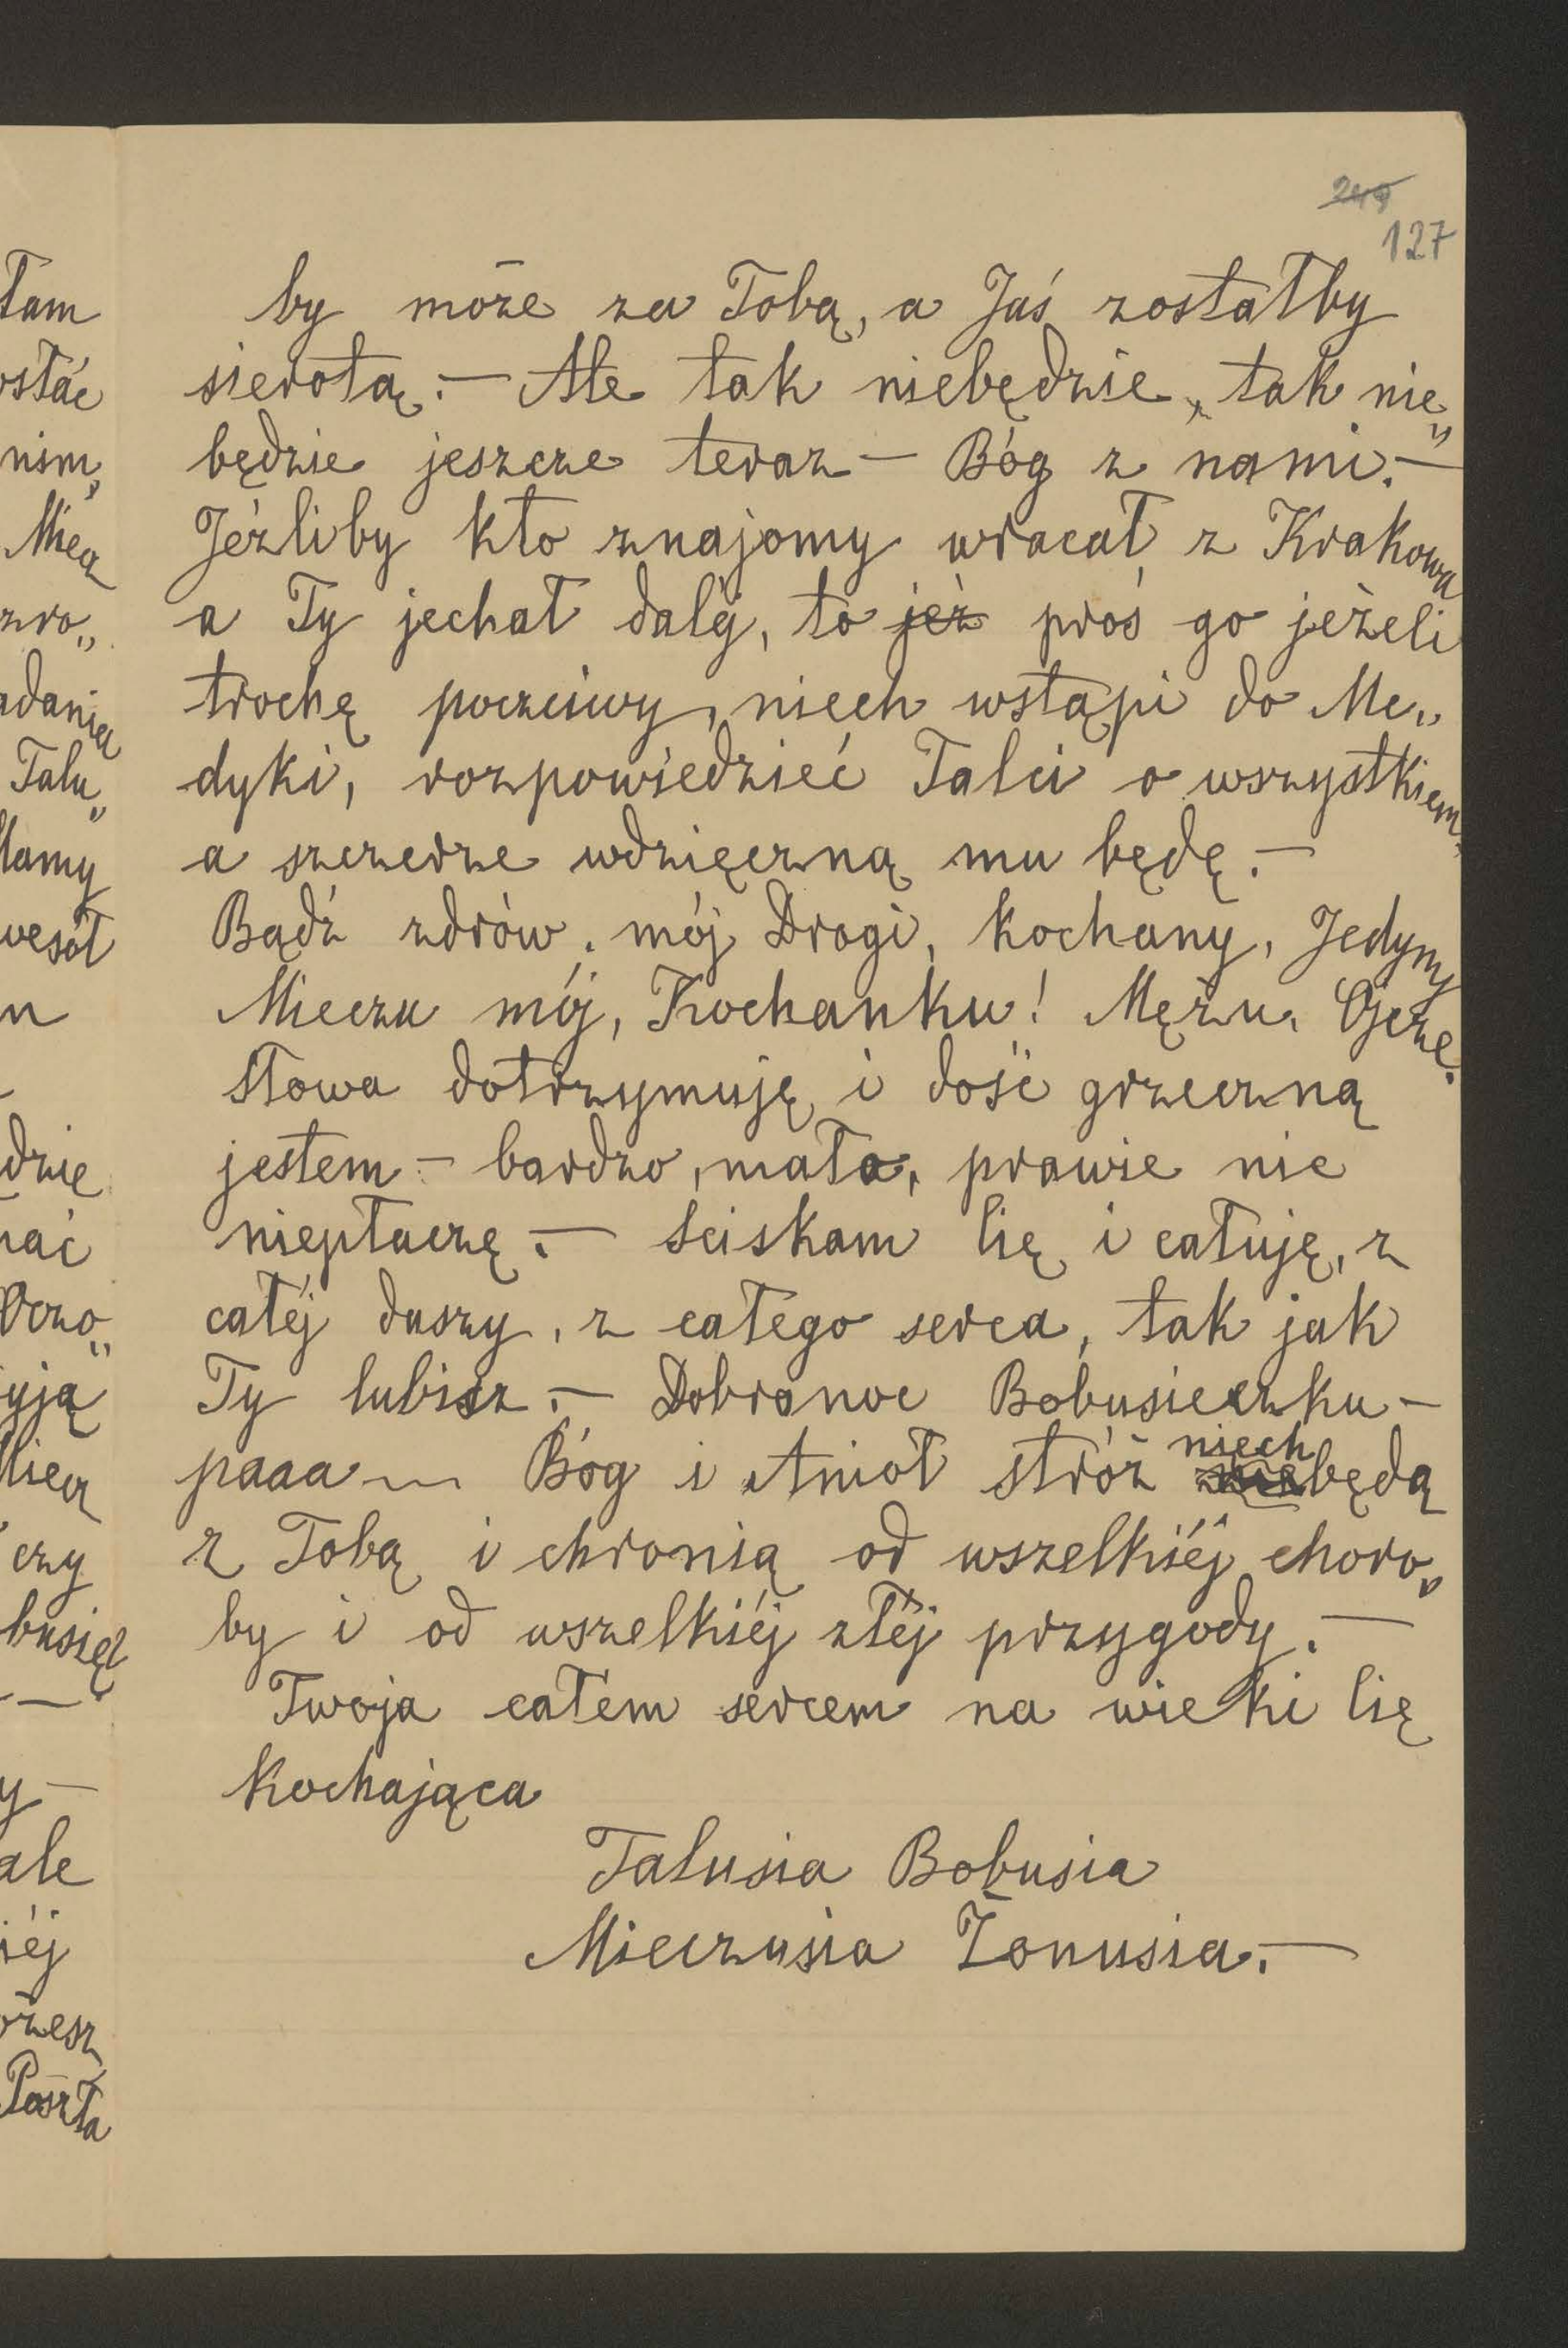 249
127
by może za Tobą, a Jaś zostałby
sierotą. — Ale tak niebędzie, tak nie„
będzie jeszcze teraz — Bóg z nami. —
Jeźliby kto znajomy wracał z Krakowa
a Ty jechał daléj, to jeż proś go jeżeli
trochę poczciwy, niech wstąpi do Me„
dyki, rozpowiedzieć Talci o wszystkiem,
a szczerze wdzięczną mu będę. —
Bądź zdrów, mój Drogi, kochany, Jedyny
Mieczu mój, Kochanku! Mężu, Ojcze.
Słowa dotrzymuję i dość grzeczną
jestem — bardzo, mało, prawie nic
niepłaczę. — Sciskam Cię i całuję, z
całéj duszy, z całego serca, tak jak
Ty lubisz. — Dobranoc Bobusieczku —
paaa — Bóg i Anioł stróż niech będą
z Tobą i chronią od wszelkiéj choro„
by i od wszelkiéj złéj przygody. —
Twoja całem sercem na wieki Cię
kochająca
Talusia Bobusia
Mieczusia Żonusia. —
tam
ostać
nim,
Miecz
zro„
adania
Talu„
Mamy
wesół
n
ędzie
nać
Oczo„
yją
Miecz
czy
busięd
—
y —
ale
iéj
ożesz
Poszta